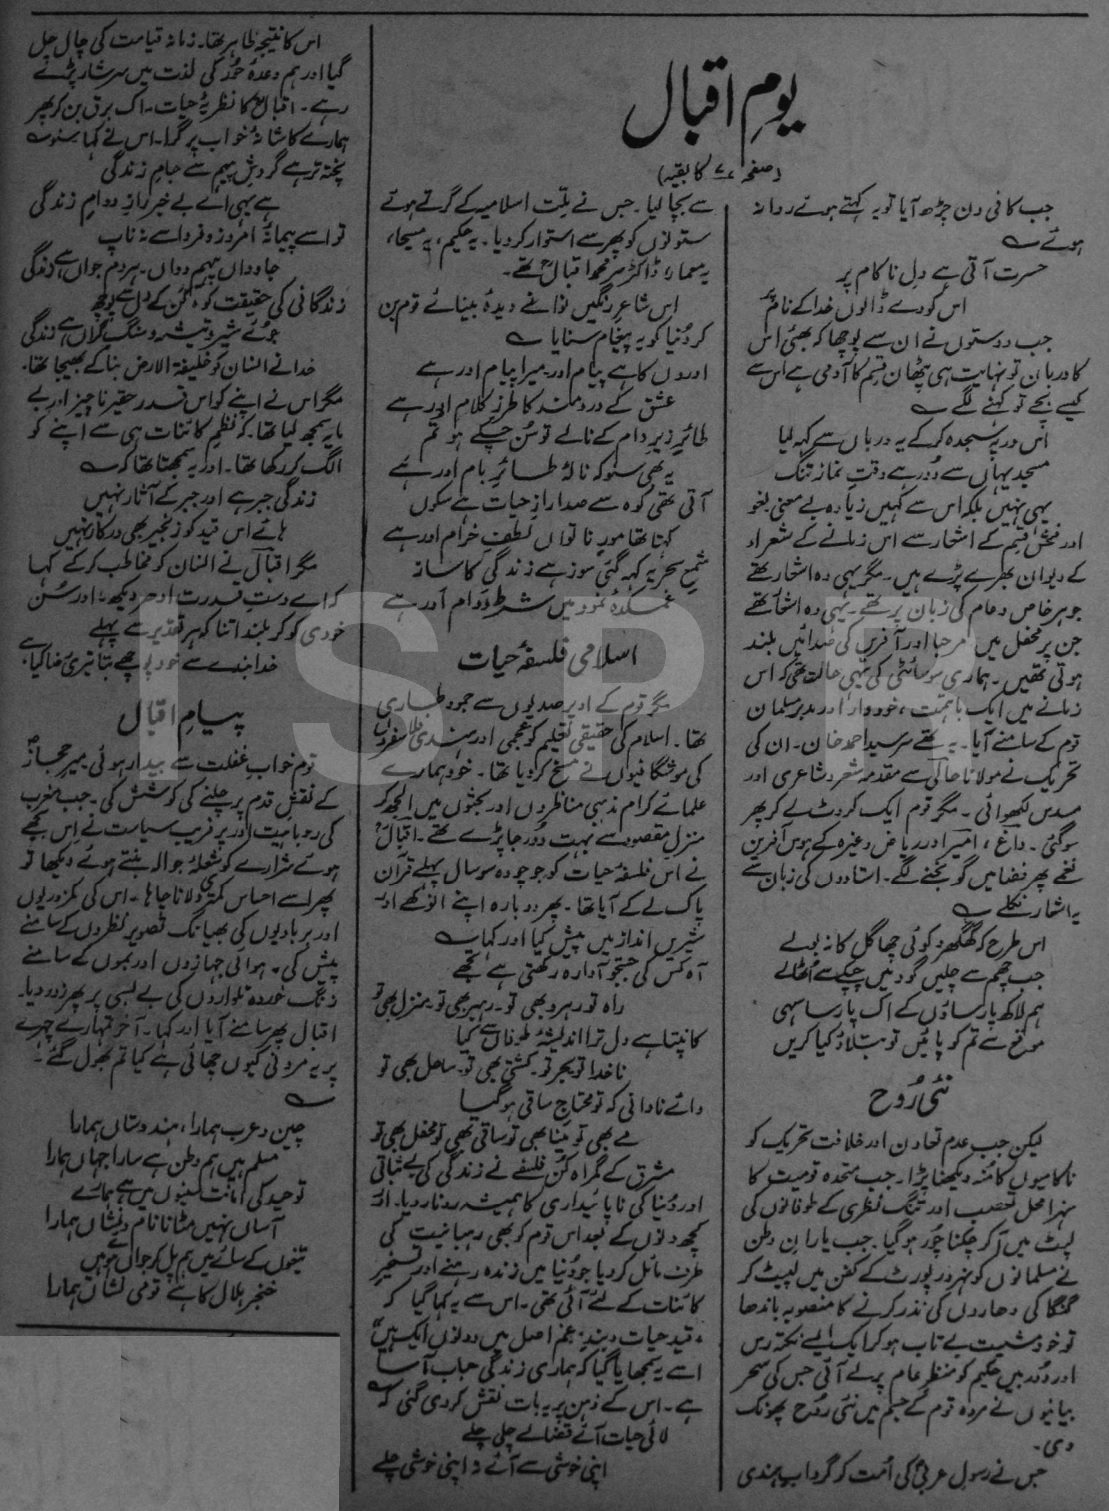 یومِ اقبال
(صفحہ ۷۷ کا بقیہ)
جب کافی دن چڑھ آیا تو یہ کہتے ہوئے روانہ
ہوئے ؎
حسرت آتی ہے دلِ ناکام پر
اس کو دے ڈالوں خدا کے نام پر
جب دوستوں نے ان سے پوچھا کہ بھئی اس
کا دربان تو نہایت ہی پٹھان قسم کا آدمی ہے اس سے
کیسے بچے تو کہنے لگے ؎
اس در پہ سجدہ کر کے یہ درباں سے کہہ لیا
مسجد یہاں سے دور ہے وقتِ نماز تنگ
یہی نہیں بلکہ اس سے کہیں زیادہ بے معنی لغو
اور فحش قسم کے اشعار سے اس زمانے کے شعراء
کے دیوان بھرے پڑے ہیں۔ مگر یہی وہ اشعار تھے
جو ہر خاص و عام کی زبان پر تھے۔ یہی وہ اشعار تھے
جن پر محفل میں مرحبا اور آفریں کی صدائیں بلند
ہوتی تھیں۔ ہماری سوسائٹی کی یہی حالت تھی کہ اس
زمانے میں ایک باہمت، خوددار اور مدبر مسلمان
قوم کے سامنے آیا۔ یہ تھے سرسید احمد خان۔ ان کی
تحریک نے مولانا حالی سے مقدمہ شعر و شاعری اور
مسدس لکھوائی۔ مگر قوم ایک کروٹ لے کر پھر
سو گئی۔ داغ، امیر اور ریاض وغیرہ کے ہوس آفرین
نغمے پھر فضا میں گونجنے لگے۔ استادوں کی زبان سے
یہ اشعار نکلے ؎
اس طرح کہ گھنگھرو کوئی چھاگل کا نہ بولے
جب چھم سے چلیں گود میں چپکے سے اٹھا لے
ہم لاکھ پارساؤں کے اک پارسا سہی
موقع سے تم کو پائیں تو بتلاؤ کیا کریں
نئی رُوح
لیکن جب عدم تعاون اور خلافت تحریک کو
ناکامیوں کا منہ دیکھنا پڑا۔ جب متحدہ قومیت کا
سنہرا محل تعصب اور تنگ نظری کے طوفانوں کی
لپٹ میں آ کر چکنا چور ہو گیا۔ جب یارانِ وطن
نے مسلمانوں کو نہرو رپورٹ کے کفن میں لپیٹ کر
گنگا کی دھاروں کی نذر کرنے کا منصوبہ باندھا
تو خود مشیت بے تاب ہو کر ایک ایسے نکتہ رس
اور دُور بیں حکیم کو منظرِ عام پر لے آئی جس کی سحر
بیانیوں نے مردہ قوم کے جسم میں نئی رُوح پھونک
دی۔
جس نے رسولِ عربیؐ کی اُمت کو گردابِ ہندی
سے بچا لیا۔ جس نے ملّتِ اسلامیہ کے گرتے ہوئے
ستونوں کو پھر سے استوار کر دیا۔ یہ حکیم، یہ مسیحا،
یہ معمار ڈاکٹر سر محمد اقبالؒ تھے۔
اس شاعرِ رنگیں نوا نے دیدۂ بینائے قوم بن
کر دُنیا کو یہ پیغام سنایا ؎
اوروں کا ہے پیام اور، میرا پیام اور ہے
عشق کے دردمند کا طرزِ کلام اور ہے
طائرِ زیرِ دام کے نالے تو سُن چکے ہو تم
یہ بھی سنو کہ نالۂ طائرِ بام اور ہے
آتی تھی کوہ سے صدا رازِ حیات ہے سکوں
کہتا تھا مورِ ناتواں لطفِ خرام اور ہے
شمعِ سحر یہ کہہ گئی سوز ہے زندگی کا ساز
غمکدۂ نمود میں شرطِ دوام اور ہے
اسلامی فلسفۂ حیات
مگر قوم کے اوپر صدیوں سے جمود طاری
تھا۔ اسلام کی حقیقی تعلیم کو عجمی اور ہندی فلاسفروں
کی موشگافیوں نے مسخ کر دیا تھا۔ خود ہمارے
علمائے کرام مذہبی مناظروں اور بحثوں میں الجھ کر
منزلِ مقصود سے بہت دور جا پڑے تھے۔ اقبالؒ
نے اس فلسفۂ حیات کو جو چودہ سو سال پہلے قرآن
پاک لے کے آیا تھا۔ پھر دوبارہ اپنے انوکھے اور
شیریں انداز میں پیش کیا اور کہا ؎
آہ کس کی جستجو آوارہ رکھتی ہے تجھے
راہ تو، رہرو بھی تو، رہبر بھی تو، منزل بھی تو
کانپتا ہے دل ترا اندیشۂ طوفاں سے کیا
ناخدا تو، بحر تو، کشتی بھی تو، ساحل بھی تو
وائے نادانی کہ تو محتاجِ ساقی ہو گیا
مے بھی تو مینا بھی تو ساقی بھی تو محفل بھی تو
مشرق کے گمراہ کُن فلسفے نے زندگی کی بے ثباتی
اور دُنیا کی ناپائیداری کا ہمیشہ رونا رویا۔ اور
کچھ دنوں کے بعد اس قوم کو بھی رہبانیت کی
طرف مائل کر دیا جو دُنیا میں زندہ رہنے اور تسخیرِ
کائنات کے لئے آئی تھی۔ اس سے یہ کہا گیا کہ
"قیدِ حیات و بندِ غم اصل میں دونوں ایک ہیں"
اسے یہ سمجھایا گیا کہ ہماری زندگی حباب آسا
ہے۔ اس کے ذہن پر یہ بات نقش کر دی گئی کہ ؎
لائی حیات آئے قضا لے چلی چلے
اپنی خوشی سے آئے نہ اپنی خوشی چلے
اس کا نتیجہ ظاہر تھا۔ زمانہ قیامت کی چال چل
گیا اور ہم وعدۂ حُور کی لذت میں سرشار پڑے
رہے۔ اقبالؒ کا نظریۂ حیات۔ اک برق بن کر پھر
ہمارے کاشانۂ خواب پر گرا۔ اس نے کہا سنو ؎
پختہ تر ہے گردشِ پیہم سے جامِ زندگی
ہے یہی اے بے خبر رازِ دوامِ زندگی
تو اسے پیمانۂ امروز و فردا سے نہ ناپ
جاوداں پیہم دواں۔ ہر دم جواں ہے زندگی
زندگانی کی حقیقت کوہکن کے دل سے پوچھ
جوئے شیر و تیشہ و سنگِ گراں ہے زندگی
خدا نے انسان کو خلیفۃ الارض بنا کے بھیجا تھا۔
مگر اس نے اپنے کو اس قدر حقیر ناچیز اور بے
مایہ سمجھ لیا تھا۔ کہ نظمِ کائنات ہی سے اپنے کو
الگ کر رکھا تھا۔ اور یہ سمجھتا تھا کہ ؎
زندگی جبر ہے اور جبر کے آثار نہیں
ہائے اس قید کو زنجیر بھی درکار نہیں
مگر اقبال نے انسان کو مخاطب کر کے کہا
کہ اے دستِ قدرت ادھر دیکھ، اور سُن
خودی کو کر بلند اتنا کہ ہر تقدیر سے پہلے
خدا بندے سے خود پوچھے بتا تیری رضا کیا ہے
پیامِ اقبال
قوم خوابِ غفلت سے بیدار ہوئی میرِ حجازؐ
کے نقشِ قدم پر چلنے کی کوشش کی۔ جب مغرب
کی روباہیت اور پُر فریب سیاست نے اس بجھے
ہوئے شرارے کو شعلۂ جوالہ بنتے ہوئے دیکھا تو
پھر اسے احساسِ کمتری دلانا چاہا۔ اس کی کمزوریوں
اور بربادیوں کی بھیانک تصویر نظروں کے سامنے
پیش کی۔ ہوائی جہازوں اور بموں کے سامنے
زنگ خوردہ تلواروں کی بے بسی پر پھر زور دیا۔
اقبال پھر سامنے آیا اور کہا۔ آخر تمہارے چہرے
پر یہ مردنی کیوں چھائی ہے کیا تم بھول گئے۔
؎
چین و عرب ہمارا، ہندوستاں ہمارا
مسلم ہیں ہم وطن ہے سارا جہاں ہمارا
توحید کی امانت سینوں میں ہے ہمارے
آساں نہیں مٹانا نام و نشاں ہمارا
تیغوں کے سائے میں ہم پل کر جواں ہوئے ہیں
خنجر ہلال کا ہے قومی نشاں ہمارا
ISPR